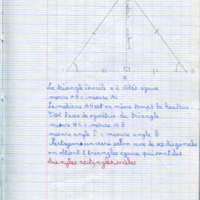 Le triangle isocèle a 2 côtés égaux
mesure AB = mesure AC
La médiane AH est en même temps la hauteur
l'axe de symétrie du triangle
mesure HC = mesure HB
mesure angle C = mesure angle B
Partageons un carré selon une de ses diagonales
on obtient 2 triangles égaux qui sont des
triangles rectangles isocèles